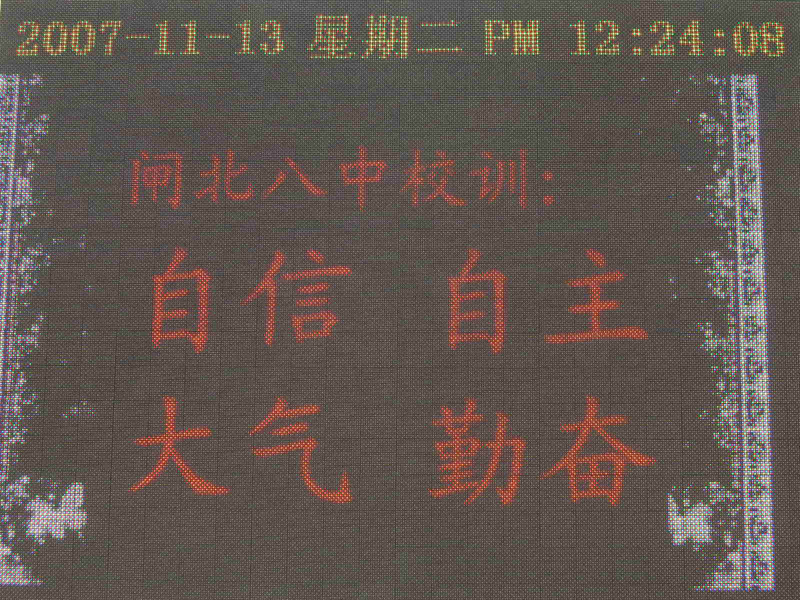 2007-11-13 星期二 PM 12:24:08
闸北八中校训:
自信 自主
大气 勤奋